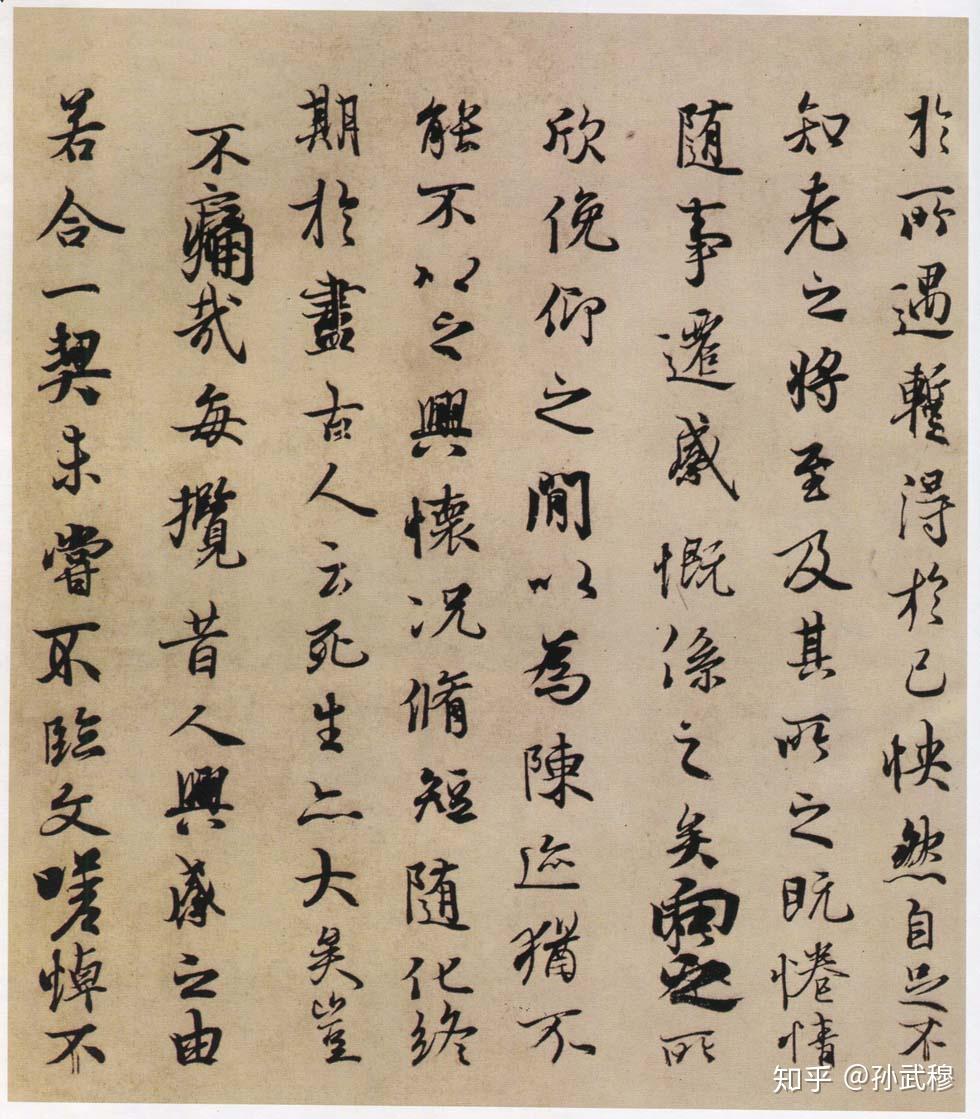 於所遇暫得於己怏然自足不
知老之將至及其所之既惓情
随事遷感慨係之矣向之所
欣俛仰之閒以為陳迹猶不
能不以之興懷况脩短随化終
期於盡古人云死生亦大矣豈
不痛哉每攬昔人興感之由
若合一契未嘗不臨文嗟悼不
知乎 @孙武穆